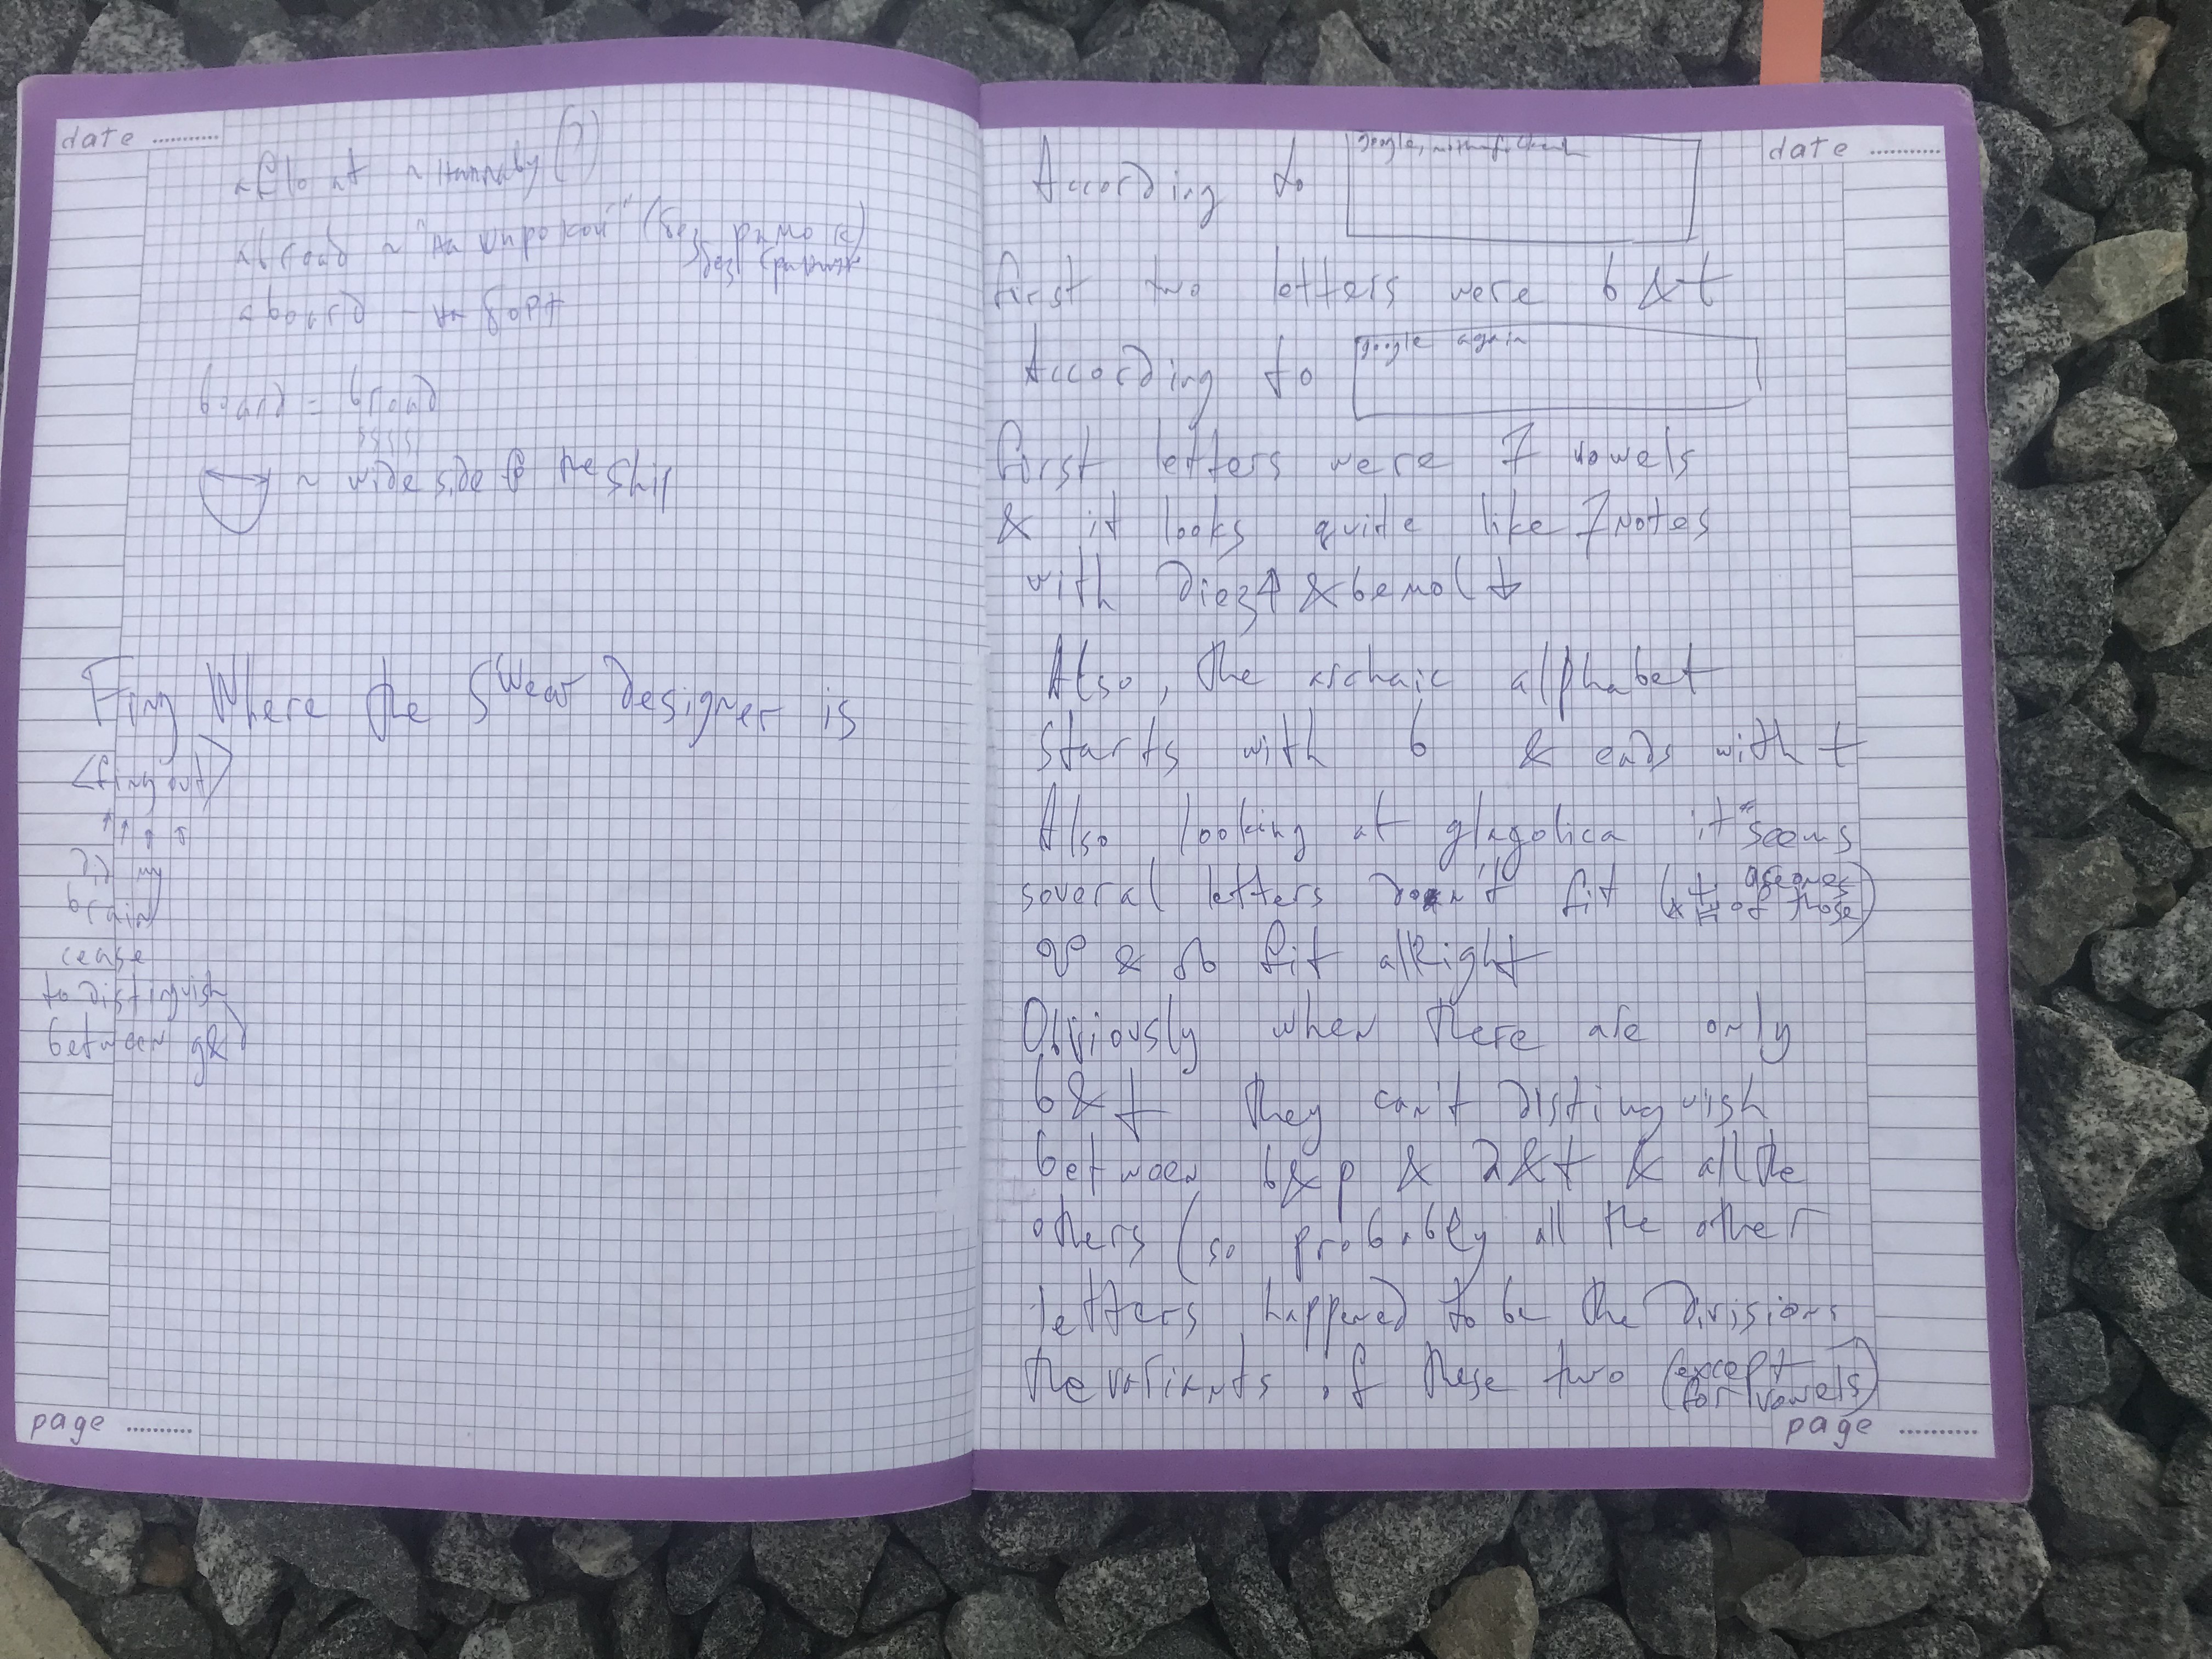 date ..........
afloat ~ наплаву (?)
abroad ~ "на широкой"
aboard — на борт
board = broad
~ wide side of the ship
Find Where the Swear designer is
<finγ out>
↑ ↑ ↑ ↑
Did my
brain
cease
to distinguish
between g & d
page ..........
date ..........
According to
google, mind you
first two letters were b & t
According to
google again
first letters were 7 vowels
& it looks quite like 7 notes
with diez↑ & bemol↓
Also, the archaic alphabet
starts with b & ends with t
Also looking at glagolica it seems
several letters don't fit
go & do fit allright
Obviously when there are only
b & t they can't distinguish
between b & p & d & t & all the
others (so probably all the other
letters happened to be the divisions
the variants of these two (except
for vowels)
page ..........